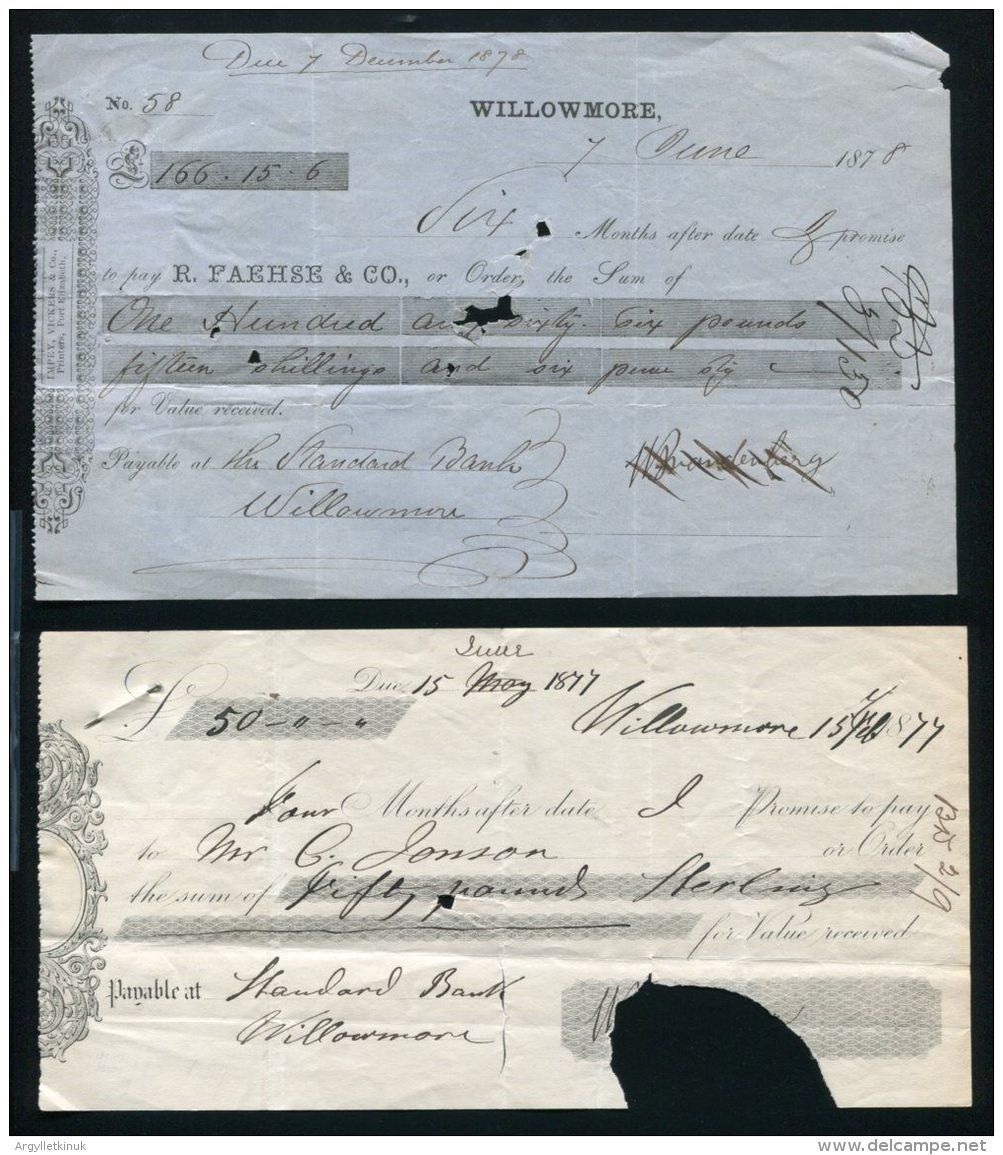 Due 7 December 1878
No. 58
WILLOWMORE,
7 June 1878
£ 166.15.6
Six Months after date I promise
to pay R. FAEHSE & CO., or Order, the Sum of
One Hundred and sixty-six pounds
fifteen shillings and six pence stg
for Value received.
Payable at the Standard Bank
Willowmore
IMPEY, VICKERS & Co.,
Printers, Port Elizabeth,
June
Due 15 May 1877
£ 50-0-"
Willowmore 15 Feb 1877
Four Months after date I Promise to pay
to Mr C. Jonson or Order
the sum of Fifty pounds Sterling
for Value received
Payable at Standard Bank
Willowmore
Argylletkinuk
www.delcampe.net